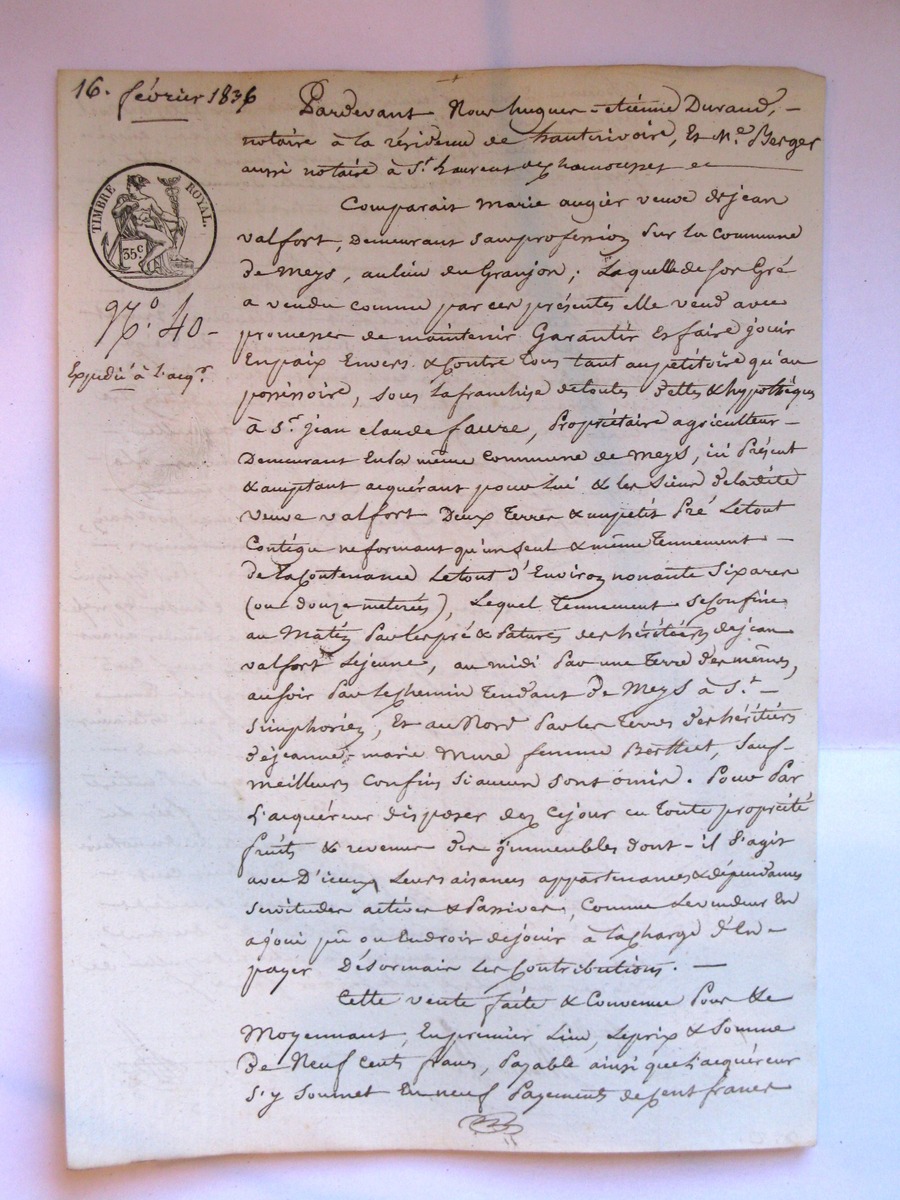 16. février 1836
Pardevant Nous hugues-etiénne Durand, -
notaire à la résidence de hauterivoire, Et Me. Berger
aussi notaire à St. Laurent de chamousset
TIMBRE ROYAL.
35c
No. 40-
Expédié à l'acqr.
Comparait Marie augier veuve de jean
valfort, Demeurant sans profession sur la Commune
de Meys, au lieu du Granjon; Laquelle de son Gré
a vendu comme par ces présentes elle vend avec
promesses de maintenir Garantir Et faire jouir
En paix Envers & Contre tous tant au pétitoire qu'au
possessoire, sous la franchise de toutes dettes & hypothèques
à Sr. jean claude faure, Propriétaire agriculteur-
Demeurant En la même Commune de Meys, ici Présent
& acceptant acquérant pour Lui & les Siens de ladite
veuve valfort Deux Terres & un petit Pré Le tout
Contigu ne formant qu'un seul & même Tennement -
de la Contenance Le tout d'Environ nonante Six ares
(ou douze meterées), Lequel Tennement se Confine
au Matin Par les pré & Patures des héritiers de jean
valfort Lejeune, au midi Par une Terre des mêmes,
au soir Par le chemin Tendant de Meys à St. -
Simphorien, Et au Nord Par les Terres des héritiers
de jeanne-marie Mure femme Berthet, Sauf-
meilleurs Confins Si aucun Sont omis. Pour Par
L'acquéreur disposer dez ce jour en Toute propriété
fruits & revenus des immeubles dont-il S'agit
avec D'iceux Leurs aisances appartenances & dépendances
Servitudes actives & Passives, Comme Le vendeur En
a joui pû ou En droit de jouir à la charge d'En-
payer Désormais Les Contributions. -
Cette vente faite & Convenue Pour &
Moyennant, En premier Lieu, Le prix & Somme
de Neuf cents francs, Payable ainsi que L'acquéreur
S'y Soumet En neuf Payements de Cent francs